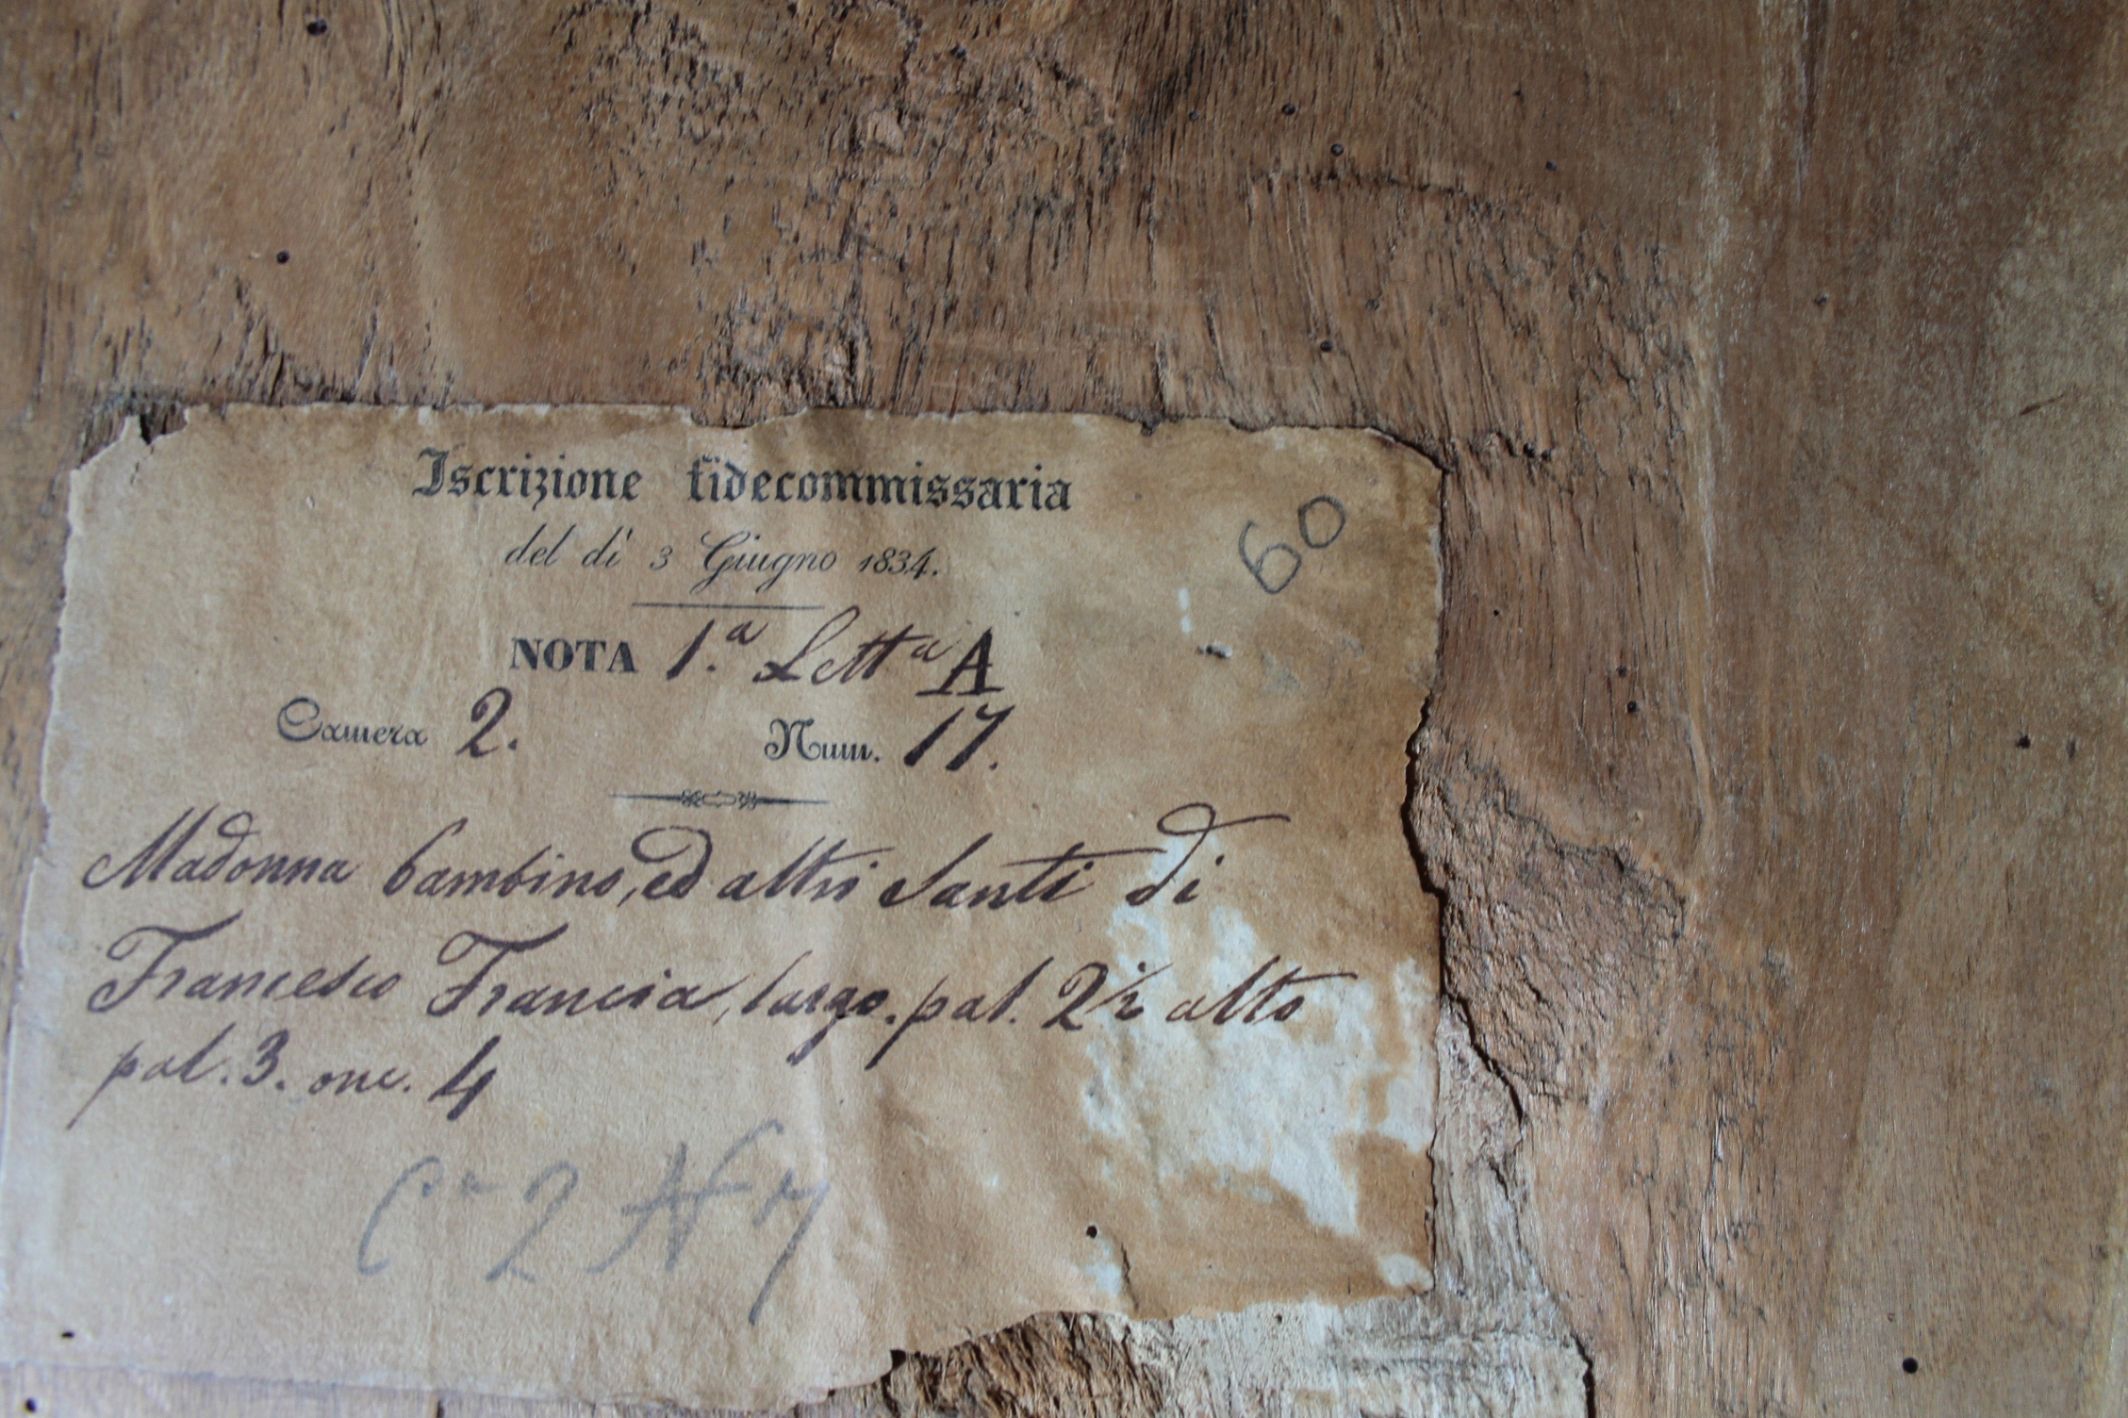 Iscrizione fidecommissaria
60
del dì 3 Giugno 1834.
NOTA 1.ª Lettª A
Camera 2. Num. 17.
Madonna bambino, ed altri Santi di
Francesco Francia, largo. pal. 2½ alto
pal. 3. onc. 4
Cª 2 N 17